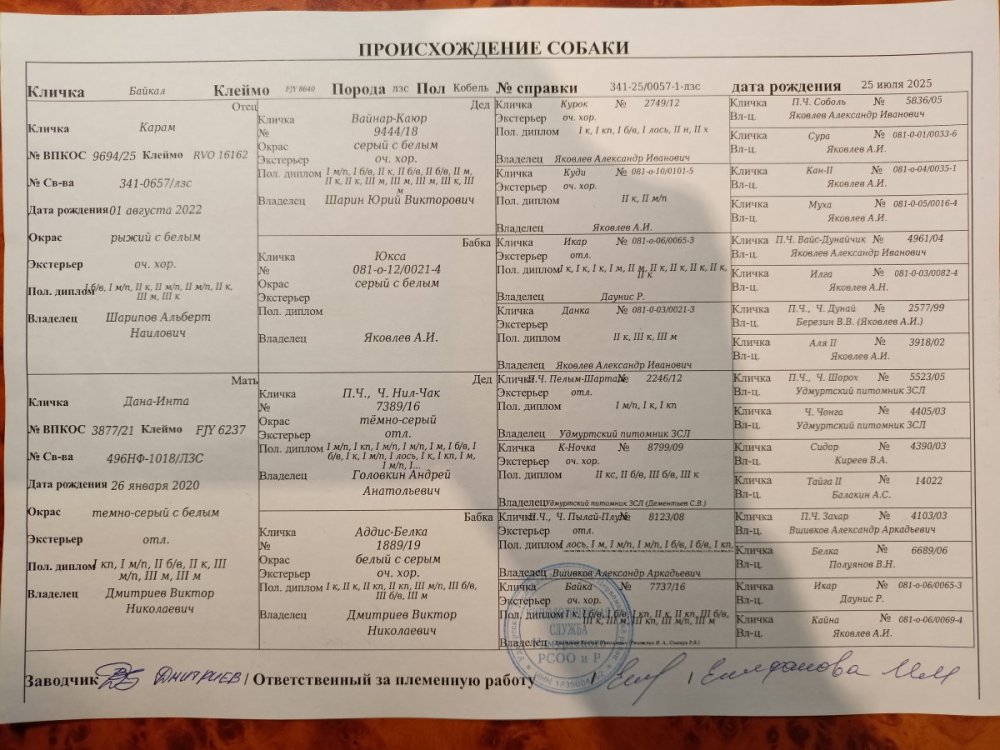 ПРОИСХОЖДЕНИЕ СОБАКИ
Кличка Байкал Клеймо FJY 8640 Порода лзс Пол Кобель № справки 341-25/0057-1-лзс дата рождения 25 июля 2025
Отец
Кличка Карам
№ ВПКОС 9694/25 Клеймо RVO 16162
№ Св-ва 341-0657/лзс
Дата рождения 01 августа 2022
Окрас рыжий с белым
Экстерьер оч. хор.
Пол. диплом I б/в, I м/п, II к, II м/п, II м/п, II к,
III м, III к
Владелец Шарипов Альберт
Наилович
Мать
Кличка Дана-Инта
№ ВПКОС 3877/21 Клеймо FJY 6237
№ Св-ва 496НФ-1018/ЛЗС
Дата рождения 26 января 2020
Окрас темно-серый с белым
Экстерьер отл.
Пол. диплом I кп, I м/п, II б/в, II к, III
м/п, III м, III м
Владелец Дмитриев Виктор
Николаевич
Дед
Кличка Вайнар-Каюр
№ 9444/18
Окрас серый с белым
Экстерьер оч. хор.
Пол. диплом I м/п, I б/в, II к, II б/в, II б/в, II м,
II к, II к, III м, III м, III м, III к, III
м
Владелец Шарин Юрий Викторович
Бабка
Кличка Юкса
№ 081-о-12/0021-4
Окрас серый с белым
Экстерьер
Пол. диплом
Владелец Яковлев А.И.
Дед
Кличка П.Ч., Ч. Нил-Чак
№ 7389/16
Окрас тёмно-серый
Экстерьер отл.
Пол. диплом I м/п, I кп, I м/п, I м/п, I м, I б/в, I
б/в, I к, I м/п, I лось, I к, I кп, I м,
I м/п, I...
Владелец Головкин Андрей
Анатольевич
Бабка
Кличка Аддис-Белка
№ 1889/19
Окрас белый с серым
Экстерьер оч. хор.
Пол. диплом I к, II к, II кп, II кп, III м/п, III б/в,
III б/в, III м
Владелец Дмитриев Виктор
Николаевич
Кличка Курок № 2749/12
Экстерьер оч. хор.
Пол. диплом I к, I кп, I б/в, I лось, II н, II х
Владелец Яковлев Александр Иванович
Кличка Куди № 081-о-10/0101-5
Экстерьер оч. хор.
Пол. диплом II к, II м/п
Владелец Яковлев А.И.
Кличка Икар № 081-о-06/0065-3
Экстерьер отл.
Пол. диплом I к, I к, I к, I м, II м, II к, II к, II к, II к,
II к
Владелец Даунис Р.
Кличка Данка № 081-о-03/0021-3
Экстерьер
Пол. диплом II к, III к, III м
Владелец Яковлев Александр Иванович
Кличка П.Ч. Пелым-Шартан № 2246/12
Экстерьер отл.
Пол. диплом I м/п, I к, I кп
Владелец Удмуртский питомник ЗСЛ
Кличка К-Ночка № 8799/09
Экстерьер оч. хор.
Пол. диплом II кс, II б/в, III б/в, III к
Владелец Удмуртский питомник ЗСЛ (Дементьев С.В.)
Кличка П.Ч., Ч. Пылай-Плут № 8123/08
Экстерьер отл.
Пол. диплом I лось, I м, I м/п, I м/п, I б/в, I б/в, I кп,
Владелец Вшивков Александр Аркадьевич
Кличка Байка № 7737/16
Экстерьер оч. хор.
Пол. диплом I к, I б/в, I б/в, I кп, II к, II кп, III б/в,
III к, III м, III кп, III м/п, III м
Владелец
Кличка П.Ч. Соболь № 5836/05
Вл-ц. Яковлев Александр Иванович
Кличка Сура № 081-0-01/0033-6
Вл-ц. Яковлев А.И.
Кличка Кан-II № 081-о-04/0035-1
Вл-ц. Яковлев А.И.
Кличка Муха № 081-0-05/0016-4
Вл-ц. Яковлев А.И.
Кличка П.Ч. Вайс-Дунайчик № 4961/04
Вл-ц. Яковлев Александр Иванович
Кличка Илга № 081-0-03/0082-4
Вл-ц. Яковлев А.Н.
Кличка П.Ч., Ч. Дунай № 2577/99
Вл-ц. Березин В.В. (Яковлев А.И.)
Кличка Аля II № 3918/02
Вл-ц. Яковлев А.И.
Кличка П.Ч., Ч. Шорох № 5523/05
Вл-ц. Удмуртский питомник ЗСЛ
Кличка Ч. Чонга № 4405/03
Вл-ц. Удмуртский питомник ЗСЛ
Кличка Сидор № 4390/03
Вл-ц. Киреев В.А.
Кличка Тайга II № 14022
Вл-ц. Балакин А.С.
Кличка П.Ч. Захар № 4103/03
Вл-ц. Вшивков Александр Аркадьевич
Кличка Белка № 6689/06
Вл-ц. Полуянов В.Н.
Кличка Икар № 081-о-06/0065-3
Вл-ц. Даунис Р.
Кличка Кайна № 081-о-06/0069-4
Вл-ц. Яковлев А.И.
СЛУЖБА
РСОО и Р
Заводчик ДМИТРИЕВ / Ответственный за племенную работу